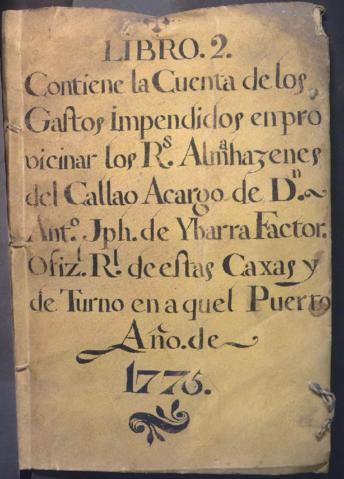 LIBRO. 2.
Contiene la Cuenta de los
Gastos impendidos en pro
vicinar los Rˢ. Almªhazenes
del Callao Acargo de Dⁿ.
Antº. Jph. de Ybarra Factor.
Ofizˡ. Rˡ. de estas Caxas y
de Turno en aquel Puerto
Año. de
1775.